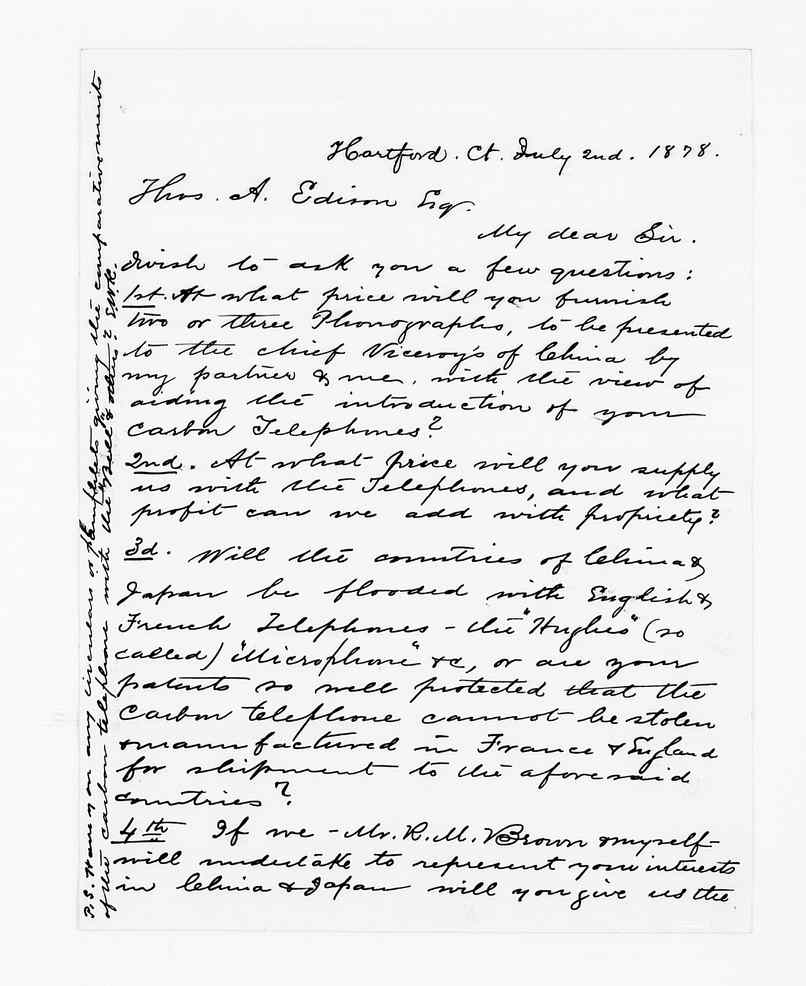 Hartford. Ct. July 2nd. 1878.
Thos. A. Edison Esq.
My dear Sir.
I wish to ask you a few questions:
1st. At what price will you furnish
two or three Phonographs, to be presented
to the chief Viceroy's of China by
my partner & me, with the view of
aiding the introduction of your
Carbon Telephones?
2nd. At what price will you supply
us with the Telephones, and what
profit can we add with propriety?
3d. Will the countries of China &
Japan be flooded with English &
French Telephones - the "Hughes" (so
called) "Microphone" &c, or are your
patents so well protected that the
Carbon telephone cannot be stolen
& manufactured in France & England
for shipment to the aforesaid
countries?
4th If we - Mr. R. M. Brown & myself -
will undertake to represent your interests
in China & Japan will you give us the
P.S. Have you any circulars or pamphlets giving the comparative merits
of the carbon telephone with the "Bell" & others?